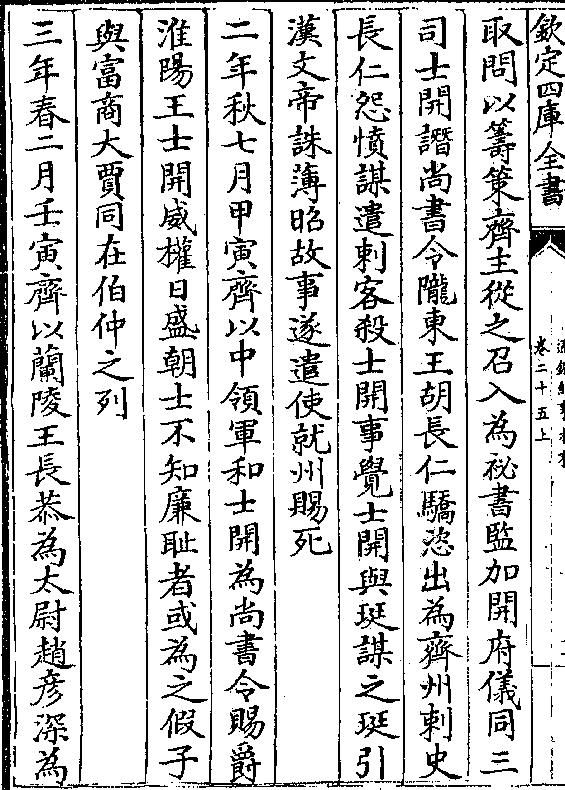 欽定四庫全書
卷二十五上
取問以籌策齊主從之召入為祕書監加開府儀同三
司士開譖尚書令隴東王胡長仁驕恣出為齊州刺史
長仁怨憤謀遣刺客殺士開事覺士開與珽謀之珽引
漢文帝誅薄昭故事遂遣使就州賜死
二年秋七月甲寅齊以中領軍和士開為尚書令賜爵
淮陽王士開威權日盛朝士不知廉耻者或為之假子
與富商大賈同在伯仲之列
三年春二月壬寅齊以蘭陵王長恭為太尉趙彦深為